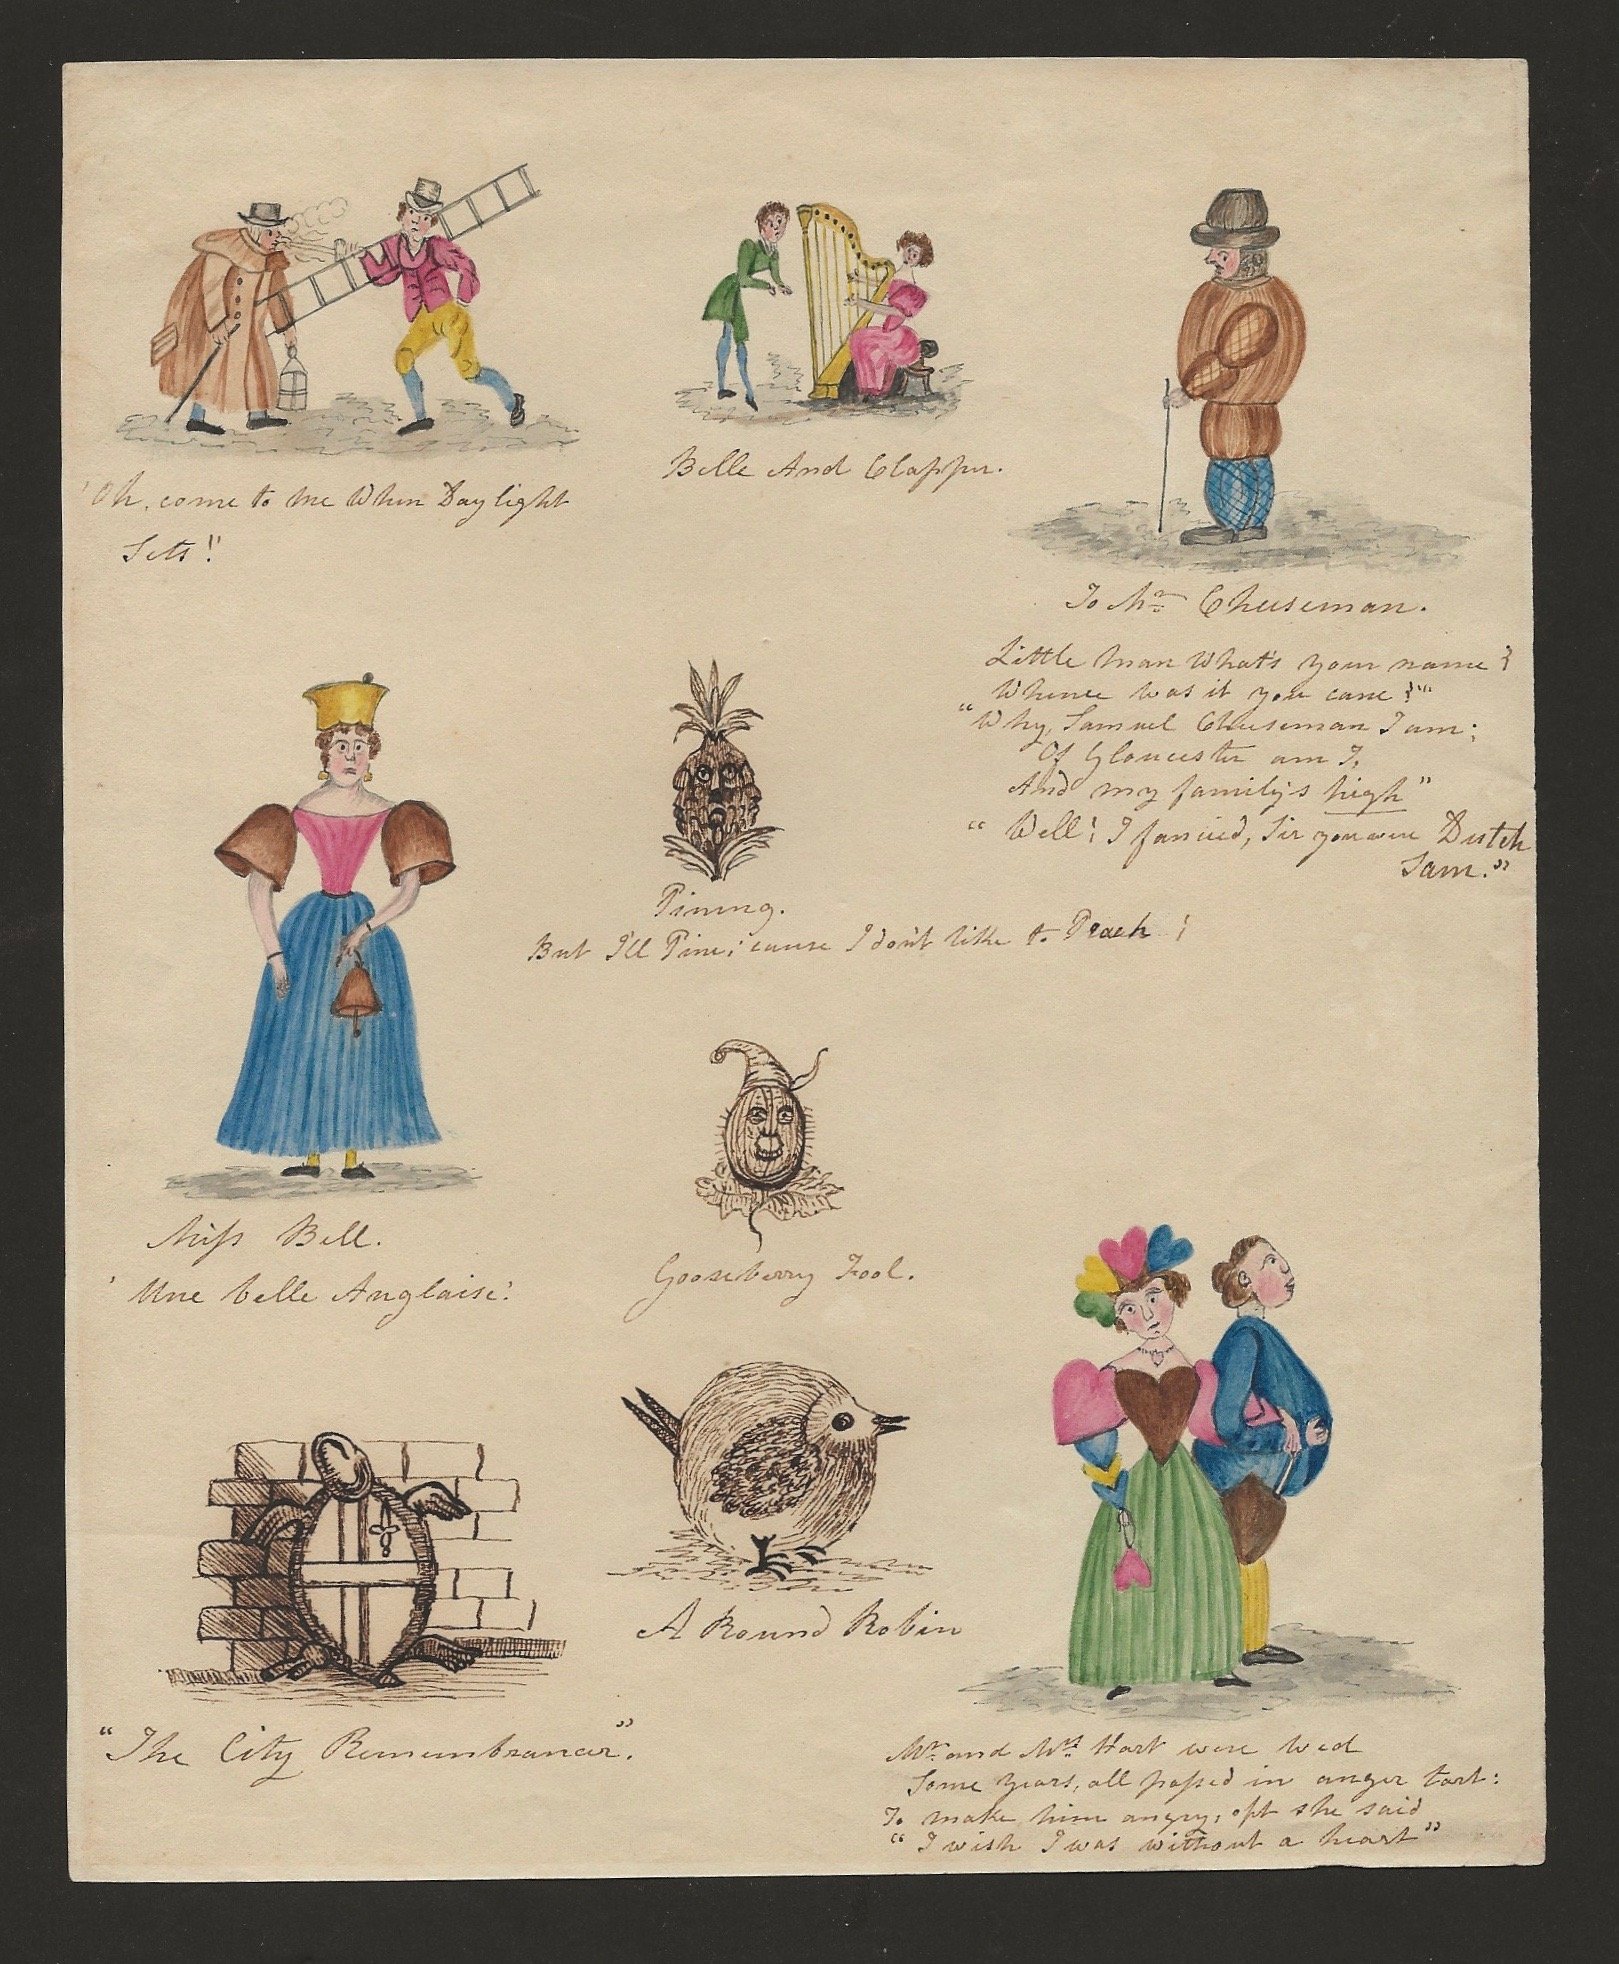 'Oh, come to me When Daylight
Sets!'
Belle And Clapper.
To Mr. Cheeseman.
Little man What's your name?
Whence was it you came?"
"Why, Samuel Cheeseman I am;
Of Gloucester am I,
And my family's high"
"Well! I fancied, Sir you were Dutch
Sam."
Pining.
But I'll Pine; cause I don't like to Peach!
Miss Bell.
'Une belle Anglaise.'
Gooseberry Fool.
A Round Robin
"The City Remembrancer".
Mr. and Mrs. Hart were wed
Some years, all passed in anger tart:
To make him angry, oft she said
"I wish I was without a heart"